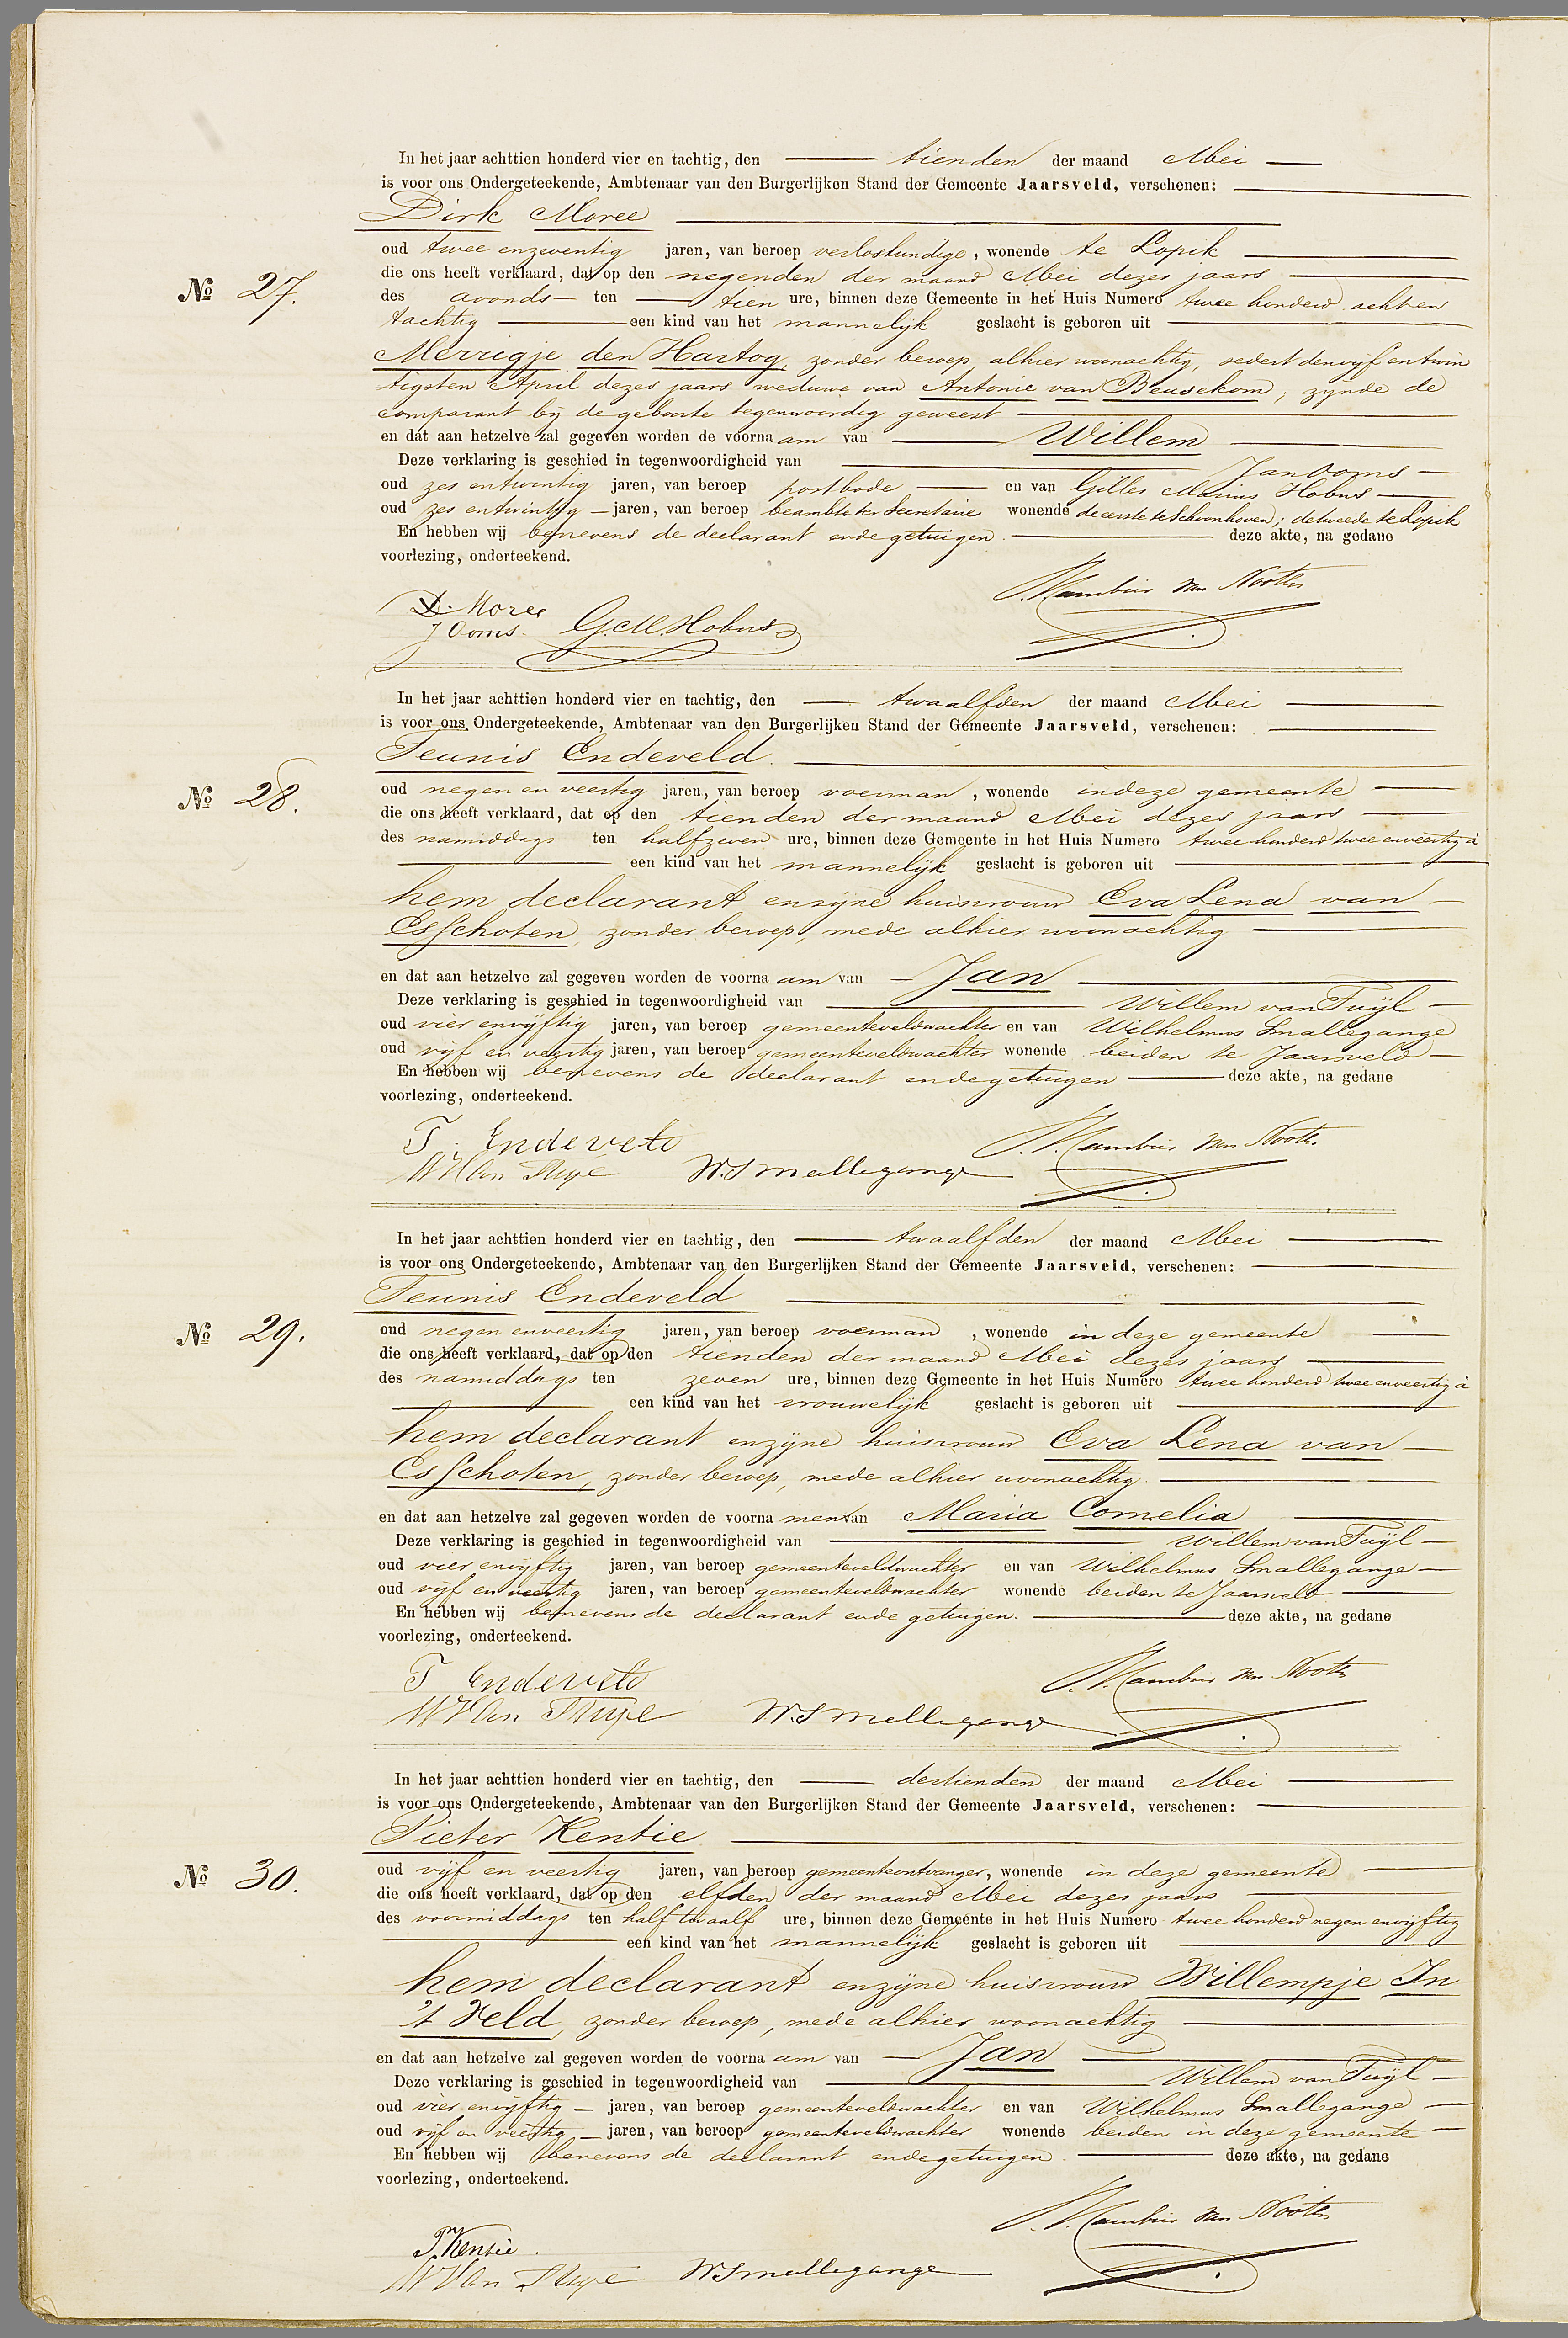 In het jaar achttien honderd vier en tachtig, den tienden der maand Mei
is voor ons Ondergeteekende, Ambtenaar van den Burgerlijken Stand der Gemeente Jaarsveld, verschenen:
Dirk Moree
oud twee en zeventig jaren, van beroep verloskundige, wonende te Lopik
die ons heeft verklaard, dat op den negenden der maand Mei dezes jaars
№ 27.
des avonds ten tien ure, binnen deze Gemeente in het Huis Numero twee honderd acht en
tachtig een kind van het mannelijk geslacht is geboren uit
Merrigje den Hartog, zonder beroep, alhier woonachtig, sedert den vijf en twin
tigsten April dezes jaars weduwe van Antonie van Beusekom, zijnde de
comparant bij de geboorte tegenwoordig geweest
en dat aan hetzelve zal gegeven worden de voornaam van Willem
Deze verklaring is geschied in tegenwoordigheid van Jan Ooms
oud zes en twintig jaren, van beroep postbode en van Gilles Marinus Hobus
oud zes en twintig jaren, van beroep beambte ter Secretarie wonende de eerste te Schoonhoven; de tweede te Lopik
En hebben wij benevens de declarant en de getuigen deze akte, na gedane
voorlezing, onderteekend.
D. Moree
J Ooms. G.M. Hobus
van Nooten
In het jaar achttien honderd vier en tachtig, den twaalfden der maand Mei
is voor ons Ondergeteekende, Ambtenaar van den Burgerlijken Stand der Gemeente Jaarsveld, verschenen:
Teunis Endeveld.
№ 28.
oud negen en veertig jaren, van beroep voerman, wonende in deze gemeente
die ons heeft verklaard, dat op den tienden der maand Mei dezes jaars
des namiddags ten half zeven ure, binnen deze Gemeente in het Huis Numero twee honderd twee en veertig a
een kind van het mannelijk geslacht is geboren uit
hem declarant en zijne huisvrouw Eva Lena van
Esschoten, zonder beroep, mede alhier woonachtig
en dat aan hetzelve zal gegeven worden de voornaam van Jan
Deze verklaring is geschied in tegenwoordigheid van Willem van Tuijl
oud vier en vijftig jaren, van beroep gemeenteveldwachter en van Wilhelmus Smallegange
oud vijf en veertig jaren, van beroep gemeenteveldwachter wonende beiden te Jaarsveld
En hebben wij benevens de declarant en de getuigen deze akte, na gedane
voorlezing, onderteekend.
T. Endeveld
W Van Tuyl W. Smallegange
van Nooten
In het jaar achttien honderd vier en tachtig, den twaalfden der maand Mei
is voor ons Ondergeteekende, Ambtenaar van den Burgerlijken Stand der Gemeente Jaarsveld, verschenen:
Teunis Endeveld
№ 29.
oud negen en veertig jaren, van beroep voerman, wonende in deze gemeente
die ons heeft verklaard, dat op den tienden der maand Mei dezes jaars
des namiddags ten zeven ure, binnen deze Gemeente in het Huis Numero twee honderd twee en veertig a
een kind van het vrouwelijk geslacht is geboren uit
hem declarant en zijne huisvrouw Eva Lena van
Esschoten, zonder beroep, mede alhier woonachtig
en dat aan hetzelve zal gegeven worden de voornamen van Maria Cornelia
Deze verklaring is geschied in tegenwoordigheid van Willem van Tuijl
oud vier en vijftig jaren, van beroep gemeenteveldwachter en van Wilhelmus Smallegange
oud vijf en veertig jaren, van beroep gemeenteveldwachter wonende beiden te Jaarsveld
En hebben wij benevens de declarant en de getuigen. deze akte, na gedane
voorlezing, onderteekend.
T Endeveld
W Van Tuyl W. Smallegange
van Nooten
In het jaar achttien honderd vier en tachtig, den dertienden der maand Mei
is voor ons Ondergeteekende, Ambtenaar van den Burgerlijken Stand der Gemeente Jaarsveld, verschenen:
Pieter Kentie
№ 30.
oud vijf en veertig jaren, van beroep gemeenteontvanger, wonende in deze gemeente
die ons heeft verklaard, dat op den elfden der maand Mei dezes jaars
des voormiddags ten half twaalf ure, binnen deze Gemeente in het Huis Numero twee honderd negen en vijftig
een kind van het mannelijk geslacht is geboren uit
hem declarant en zijne huisvrouw Willempje In
't Veld, zonder beroep, mede alhier woonachtig
en dat aan hetzelve zal gegeven worden de voornaam van Jan
Deze verklaring is geschied in tegenwoordigheid van Willem van Tuijl
oud vier en vijftig jaren, van beroep gemeenteveldwachter en van Wilhelmus Smallegange
oud vijf en veertig jaren, van beroep gemeenteveldwachter wonende beiden in deze gemeente
En hebben wij benevens de declarant en de getuigen deze akte, na gedane
voorlezing, onderteekend.
P Kentie.
W Van Tuyl W Smallegange
van Nooten